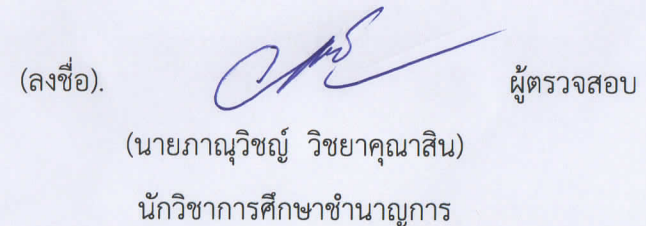 (ลงชื่อ). ผู้ตรวจสอบ
(นายภาณุวิชญ์ วิชยาคุณาสิน)
นักวิชาการศึกษาชำนาญการ